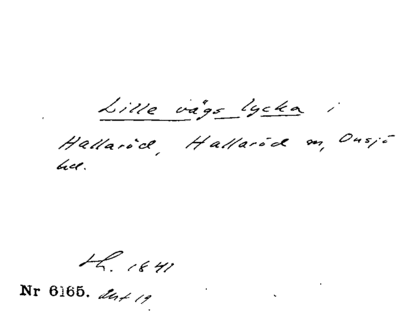 Lille vägs lycka i
Hallaröd, Hallaröd sn, Onsjö
hd.
H. 1841
Nr 6165. Akt 19